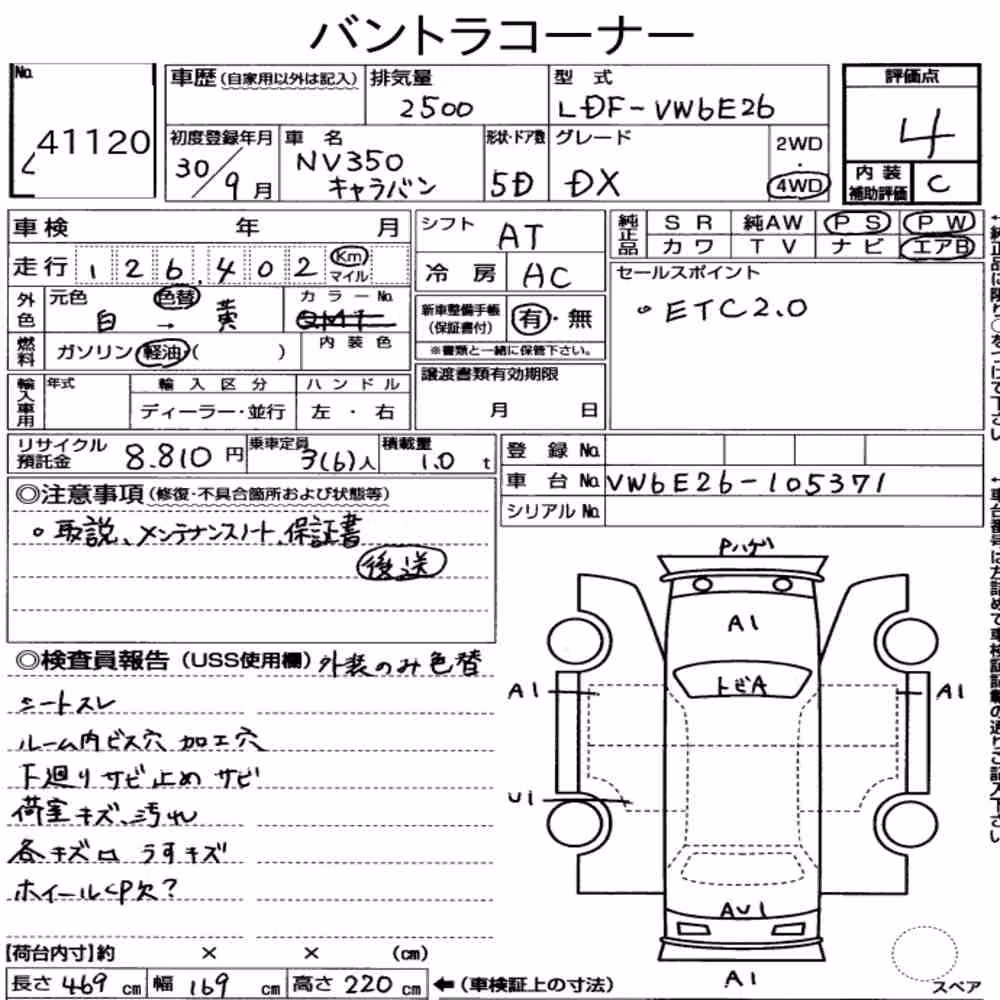 バントラコーナー
No. 41120
車歴 (自家用以外は記入)
排気量 2500
型式 LDF-VW6E26
初度登録年月 30/9月
車名 NV350 キャラバン
形状・ドア数 5D
グレード DX
2WD・4WD
評価点 4
内装補助評価 C
車検 年 月
走行 126,402 Km マイル
シフト AT
冷房 AC
純正品 SR 純AW PS PW
カワ TV ナビ エアB
セールスポイント
・ETC2.0
外色 元色 白 → 色替 黄
カラーNo.
内装色
燃料 ガソリン・軽油・( )
新車整備手帳(保証書付) 有・無
※書類と一緒に保管下さい。
輸入車用 年式
輸入区分 ディーラー・並行
ハンドル 左・右
譲渡書類有効期限
月 日
リサイクル預託金 8.810円
乗車定員 3(6)人
積載量 1.0t
登録No.
車台No. VW6E26-105371
シリアルNo.
◎注意事項(修復・不具合箇所および状態等)
・取説、メンテナンスノート、保証書
後送
◎検査員報告(USS使用欄) 外装のみ色替
シートスレ
ルーム内ビス穴 加工穴
下廻りサビ止め サビ
荷室キズ、汚れ
各キズ口 うすキズ
ホイールCP欠?
Pハゲ
A1
トビA
A1
A1
U1
AU1
A1
スペア
【荷台内寸】約 × × (cm)
長さ 469 cm 幅 169 cm 高さ 220 cm ←(車検証上の寸法)